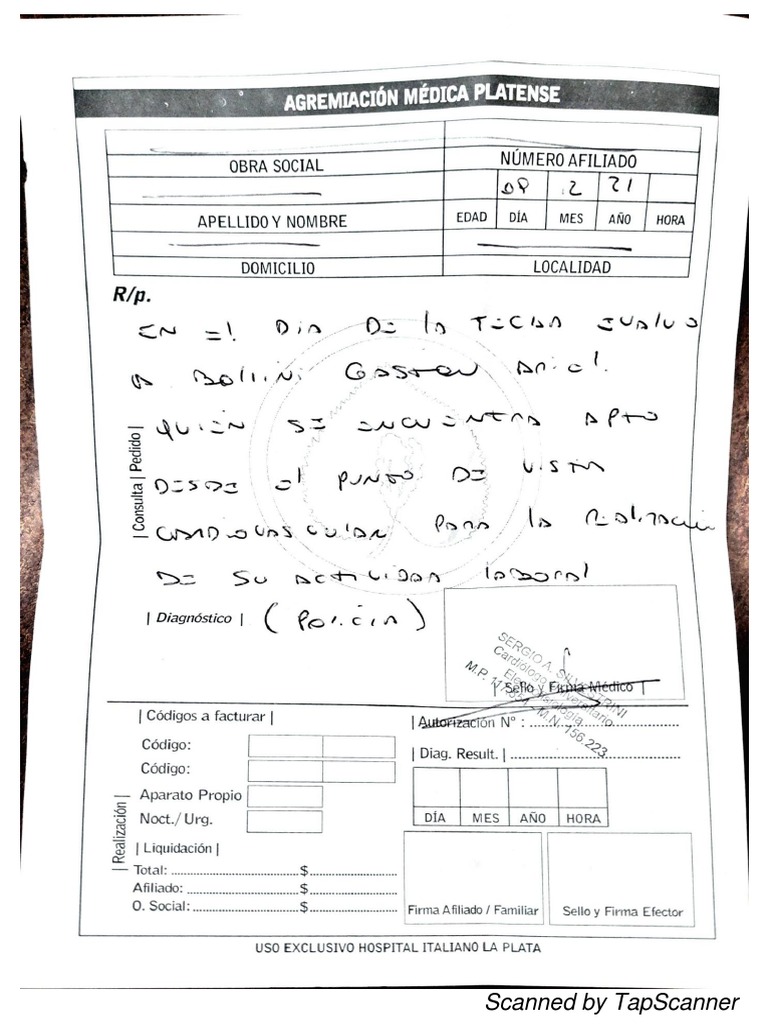 AGREMIACIÓN MÉDICA PLATENSE
OBRA SOCIAL
NÚMERO AFILIADO
08 2 21
APELLIDO Y NOMBRE
EDAD DÍA MES AÑO HORA
DOMICILIO
LOCALIDAD
R/p.
EN El DIA DE lA FECHA EVALUO
A BOLLINI GASTON ARIEL.
QUIEN SE ENCUENTRA APTO
DESDE El PUNTO DE VISTA
CARDIOVASCULAR PARA lA REALIZACION
DE SU ACTIVIDAD lABORAl
(POLICIA)
| Consulta | Pedido |
| Diagnóstico |
SERGIO A. SILVESTRINI
Cardiólogo Universitario
Electrofisiología
M.N. 156.223
| Sello y Firma Médico |
| Códigos a facturar |
| Autorización N° : ..............................
Código:
| Diag. Result. | ..............................
Código:
Aparato Propio
Noct./ Urg.
DÍA MES AÑO HORA
| Realización |
| Liquidación |
Total: ..............................$..............................
Afiliado: ..............................$..............................
O. Social: ..............................$..............................
Firma Afiliado / Familiar
Sello y Firma Efector
USO EXCLUSIVO HOSPITAL ITALIANO LA PLATA
Scanned by TapScanner